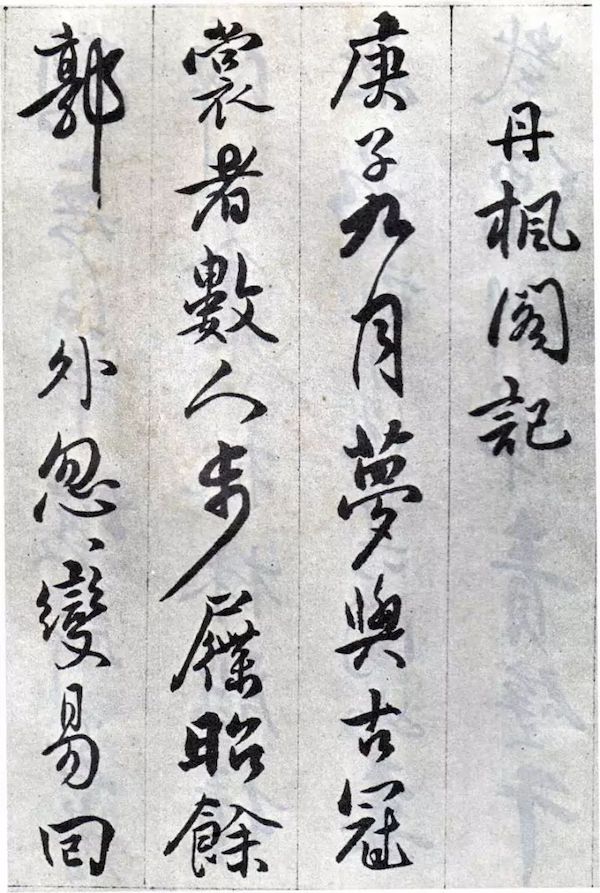 丹楓閣記
庚子九月夢與古冠
裳者數人步屧昭餘
郭外忽〻變易囘